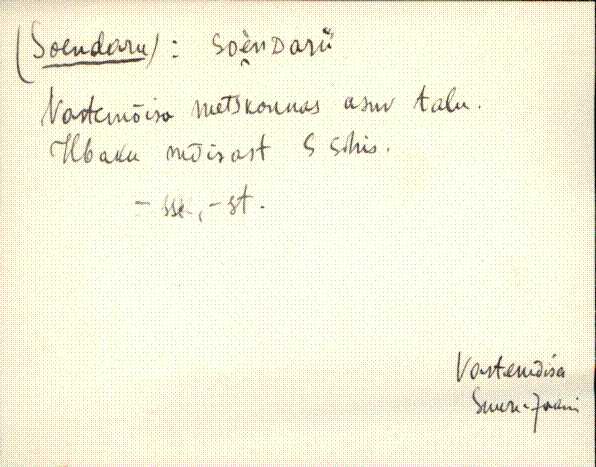 (Soendaru): soènDarù
Vastemõisa metskonnas asuv talu.
Ilbaku mõisast S sihis.
-sse, -st.
Vastemõisa
Suure-Jaani